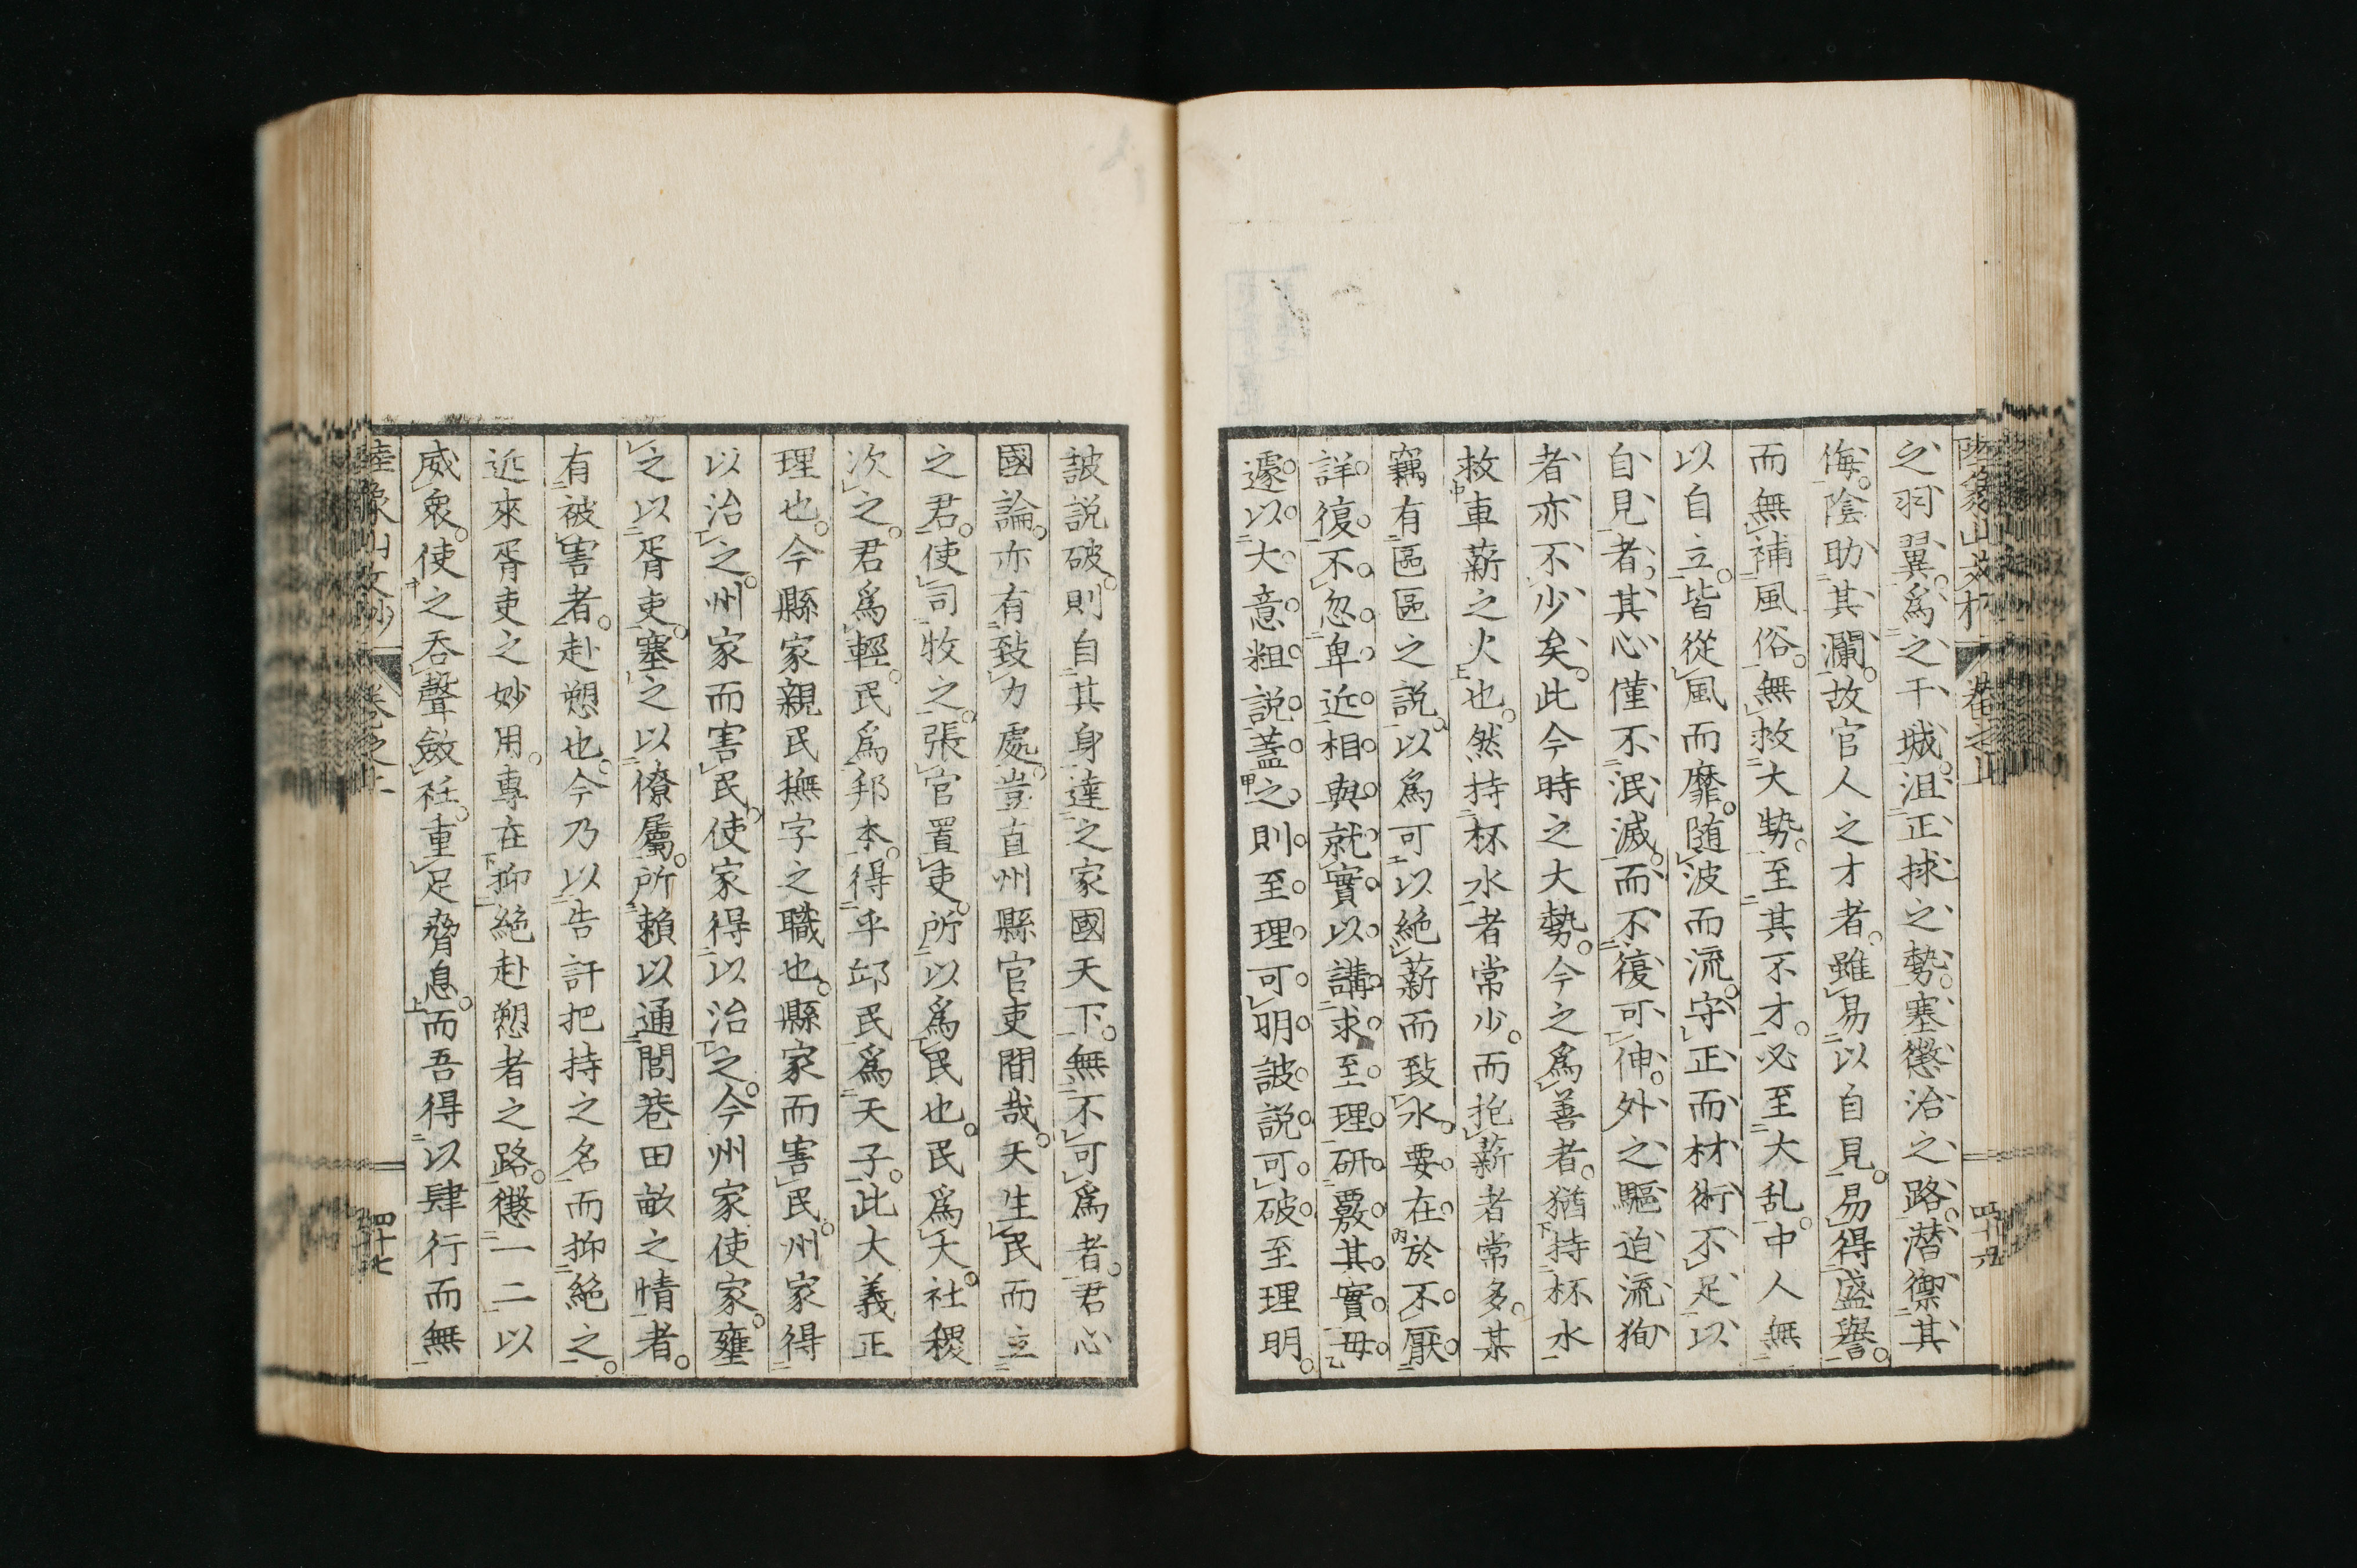 陸象山文抄 卷之上 四十六
之羽翼。爲之干城。沮正捄之勢。塞懲治之路。潜禦其
侮。陰助其瀾。故官人之才者。雖易以自見。易得盛譽。
而無補風俗。無救大勢。至其不才。必至大乱。中人無
以自立。皆從風而靡。随波而流。守正而材術不足以
自見者。其心僅不泯滅。而不復可伸。外之驅迫流徇
者亦不少矣。此今時之大勢。今之爲善者。猶持杯水
救車薪之火也。然持杯水者常少。而抱薪者常多。某
竊有區區之説。以爲可以絶薪而致水。要在於不厭
詳復。不忽卑近。相與就實以講求至理。研覈其實。毋
遽以大意粗説蓋之。則至理可明。詖説可破。至理明。
詖説破。則自其身達之家國天下。無不可爲者。君心
國論。亦有致力處。豈直州縣官吏間哉。天生民而立
之君。使司牧之。張官置吏。所以爲民也。民爲大。社稷
次之。君爲輕。民爲邦本。得乎邱民爲天子。此大義正
理也。今縣家親民撫字之職也。縣家而害民。州家得
以治之。州家而害民。使家得以治之。今州家使家。壅
之以胥吏。塞之以僚屬。所賴以通閭巷田畝之情者。
有被害者。赴愬也。今乃以告訐把持之名。而抑絶之。
近來胥吏之妙用。專在抑絶赴愬者之路。懲一二以
威衆。使之吞聲斂衽。重足脅息。而吾得以肆行而無
陸象山文抄 卷之上 四十七